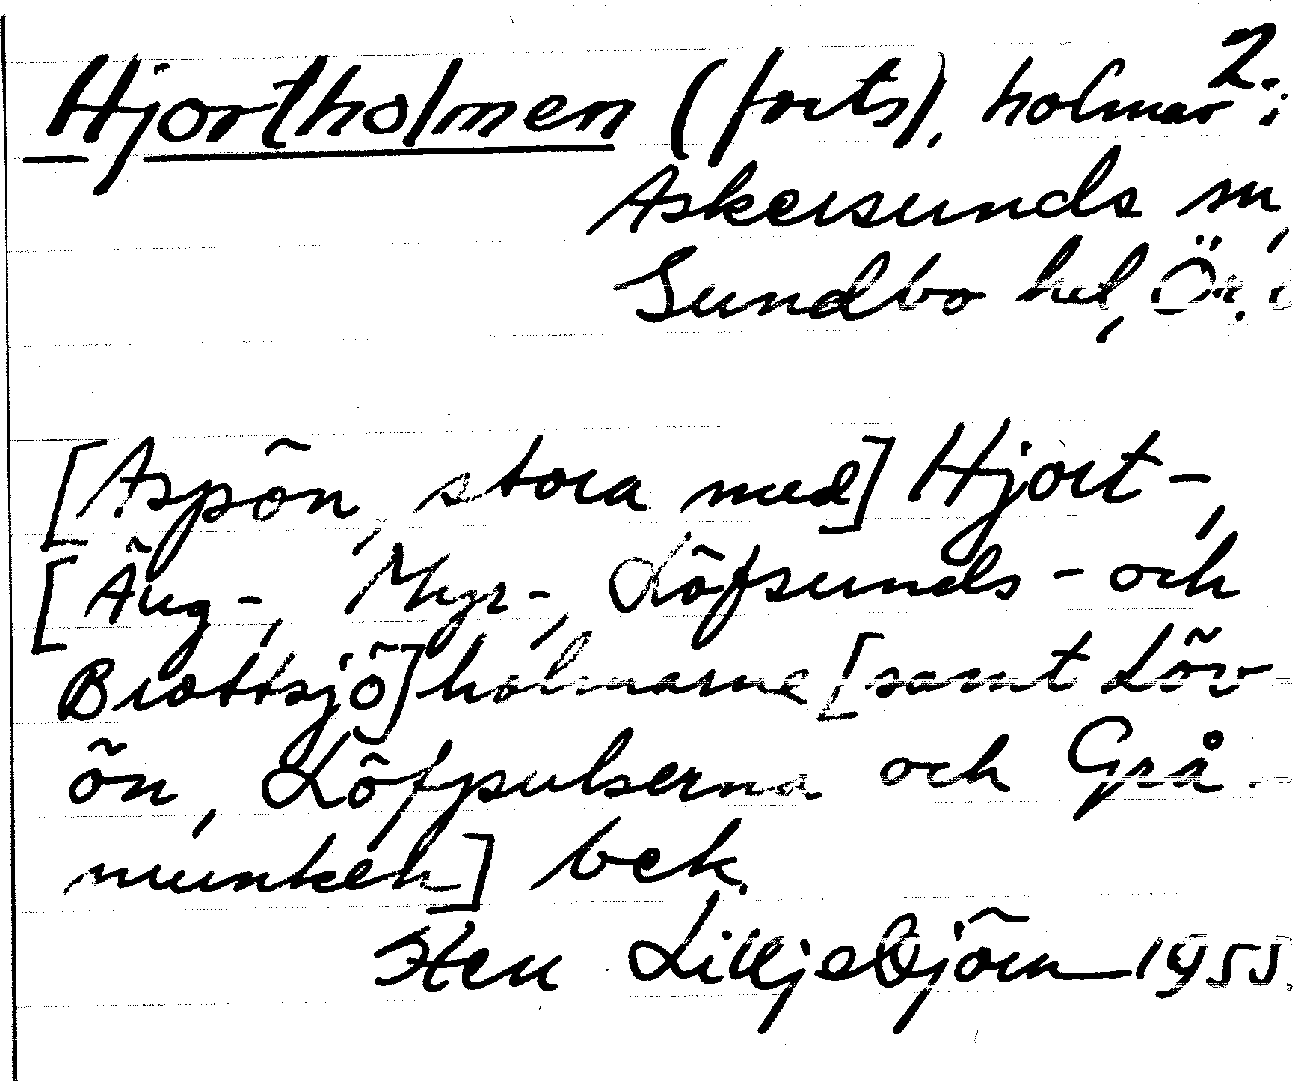 2.
Hjortholmen (forts), holmar i
Askersunds sn,
Sundbo hd, Ör.
[Aspön, stora med] Hjort-,
[Äng-, Myr-, Löfsunds- och
Brottsjö]holmarne [samt Löv-
ön, Löfpulserna och Grå
munken] bek.
Sten Lilljebjörn 1955.